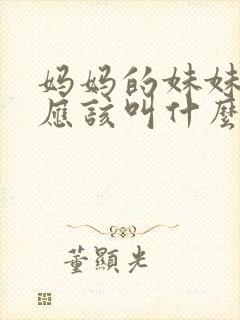 妈妈的妹妹
應該叫什麼
董顯光